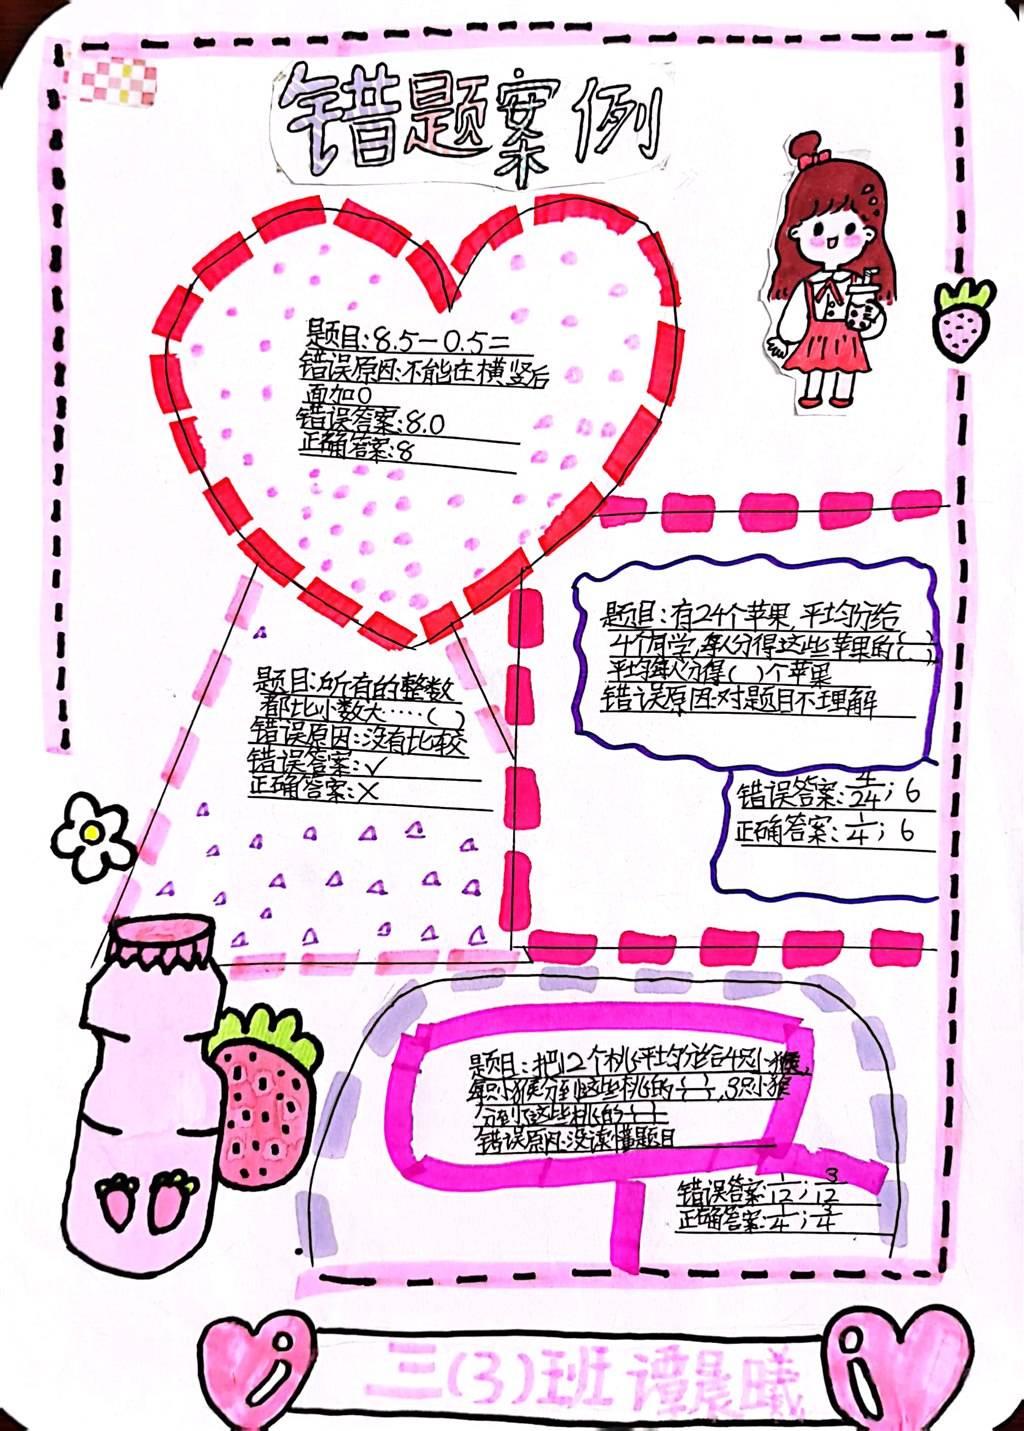 错题案例
题目:8.5-0.5=
错误原因:不能在横竖后
面加0
错误答案:8.0
正确答案:8
题目:有24个苹果,平均分给
4个同学,每人分得这些苹果的(—)
平均每人分得( )个苹果
错误原因:对题目不理解
错误答案:4/24;6
正确答案:1/4;6
题目:所有的整数
都比小数大……( )
错误原因:没有比较
错误答案:✓
正确答案:×
题目:把12个桃平均分给4只小猴,
每只小猴分到这些桃的(—),3只小猴
分到这些桃的(—)
错误原因:没读懂题目
错误答案:1/12;3/12
正确答案:1/4;3/4
三(3)班 谭晨曦